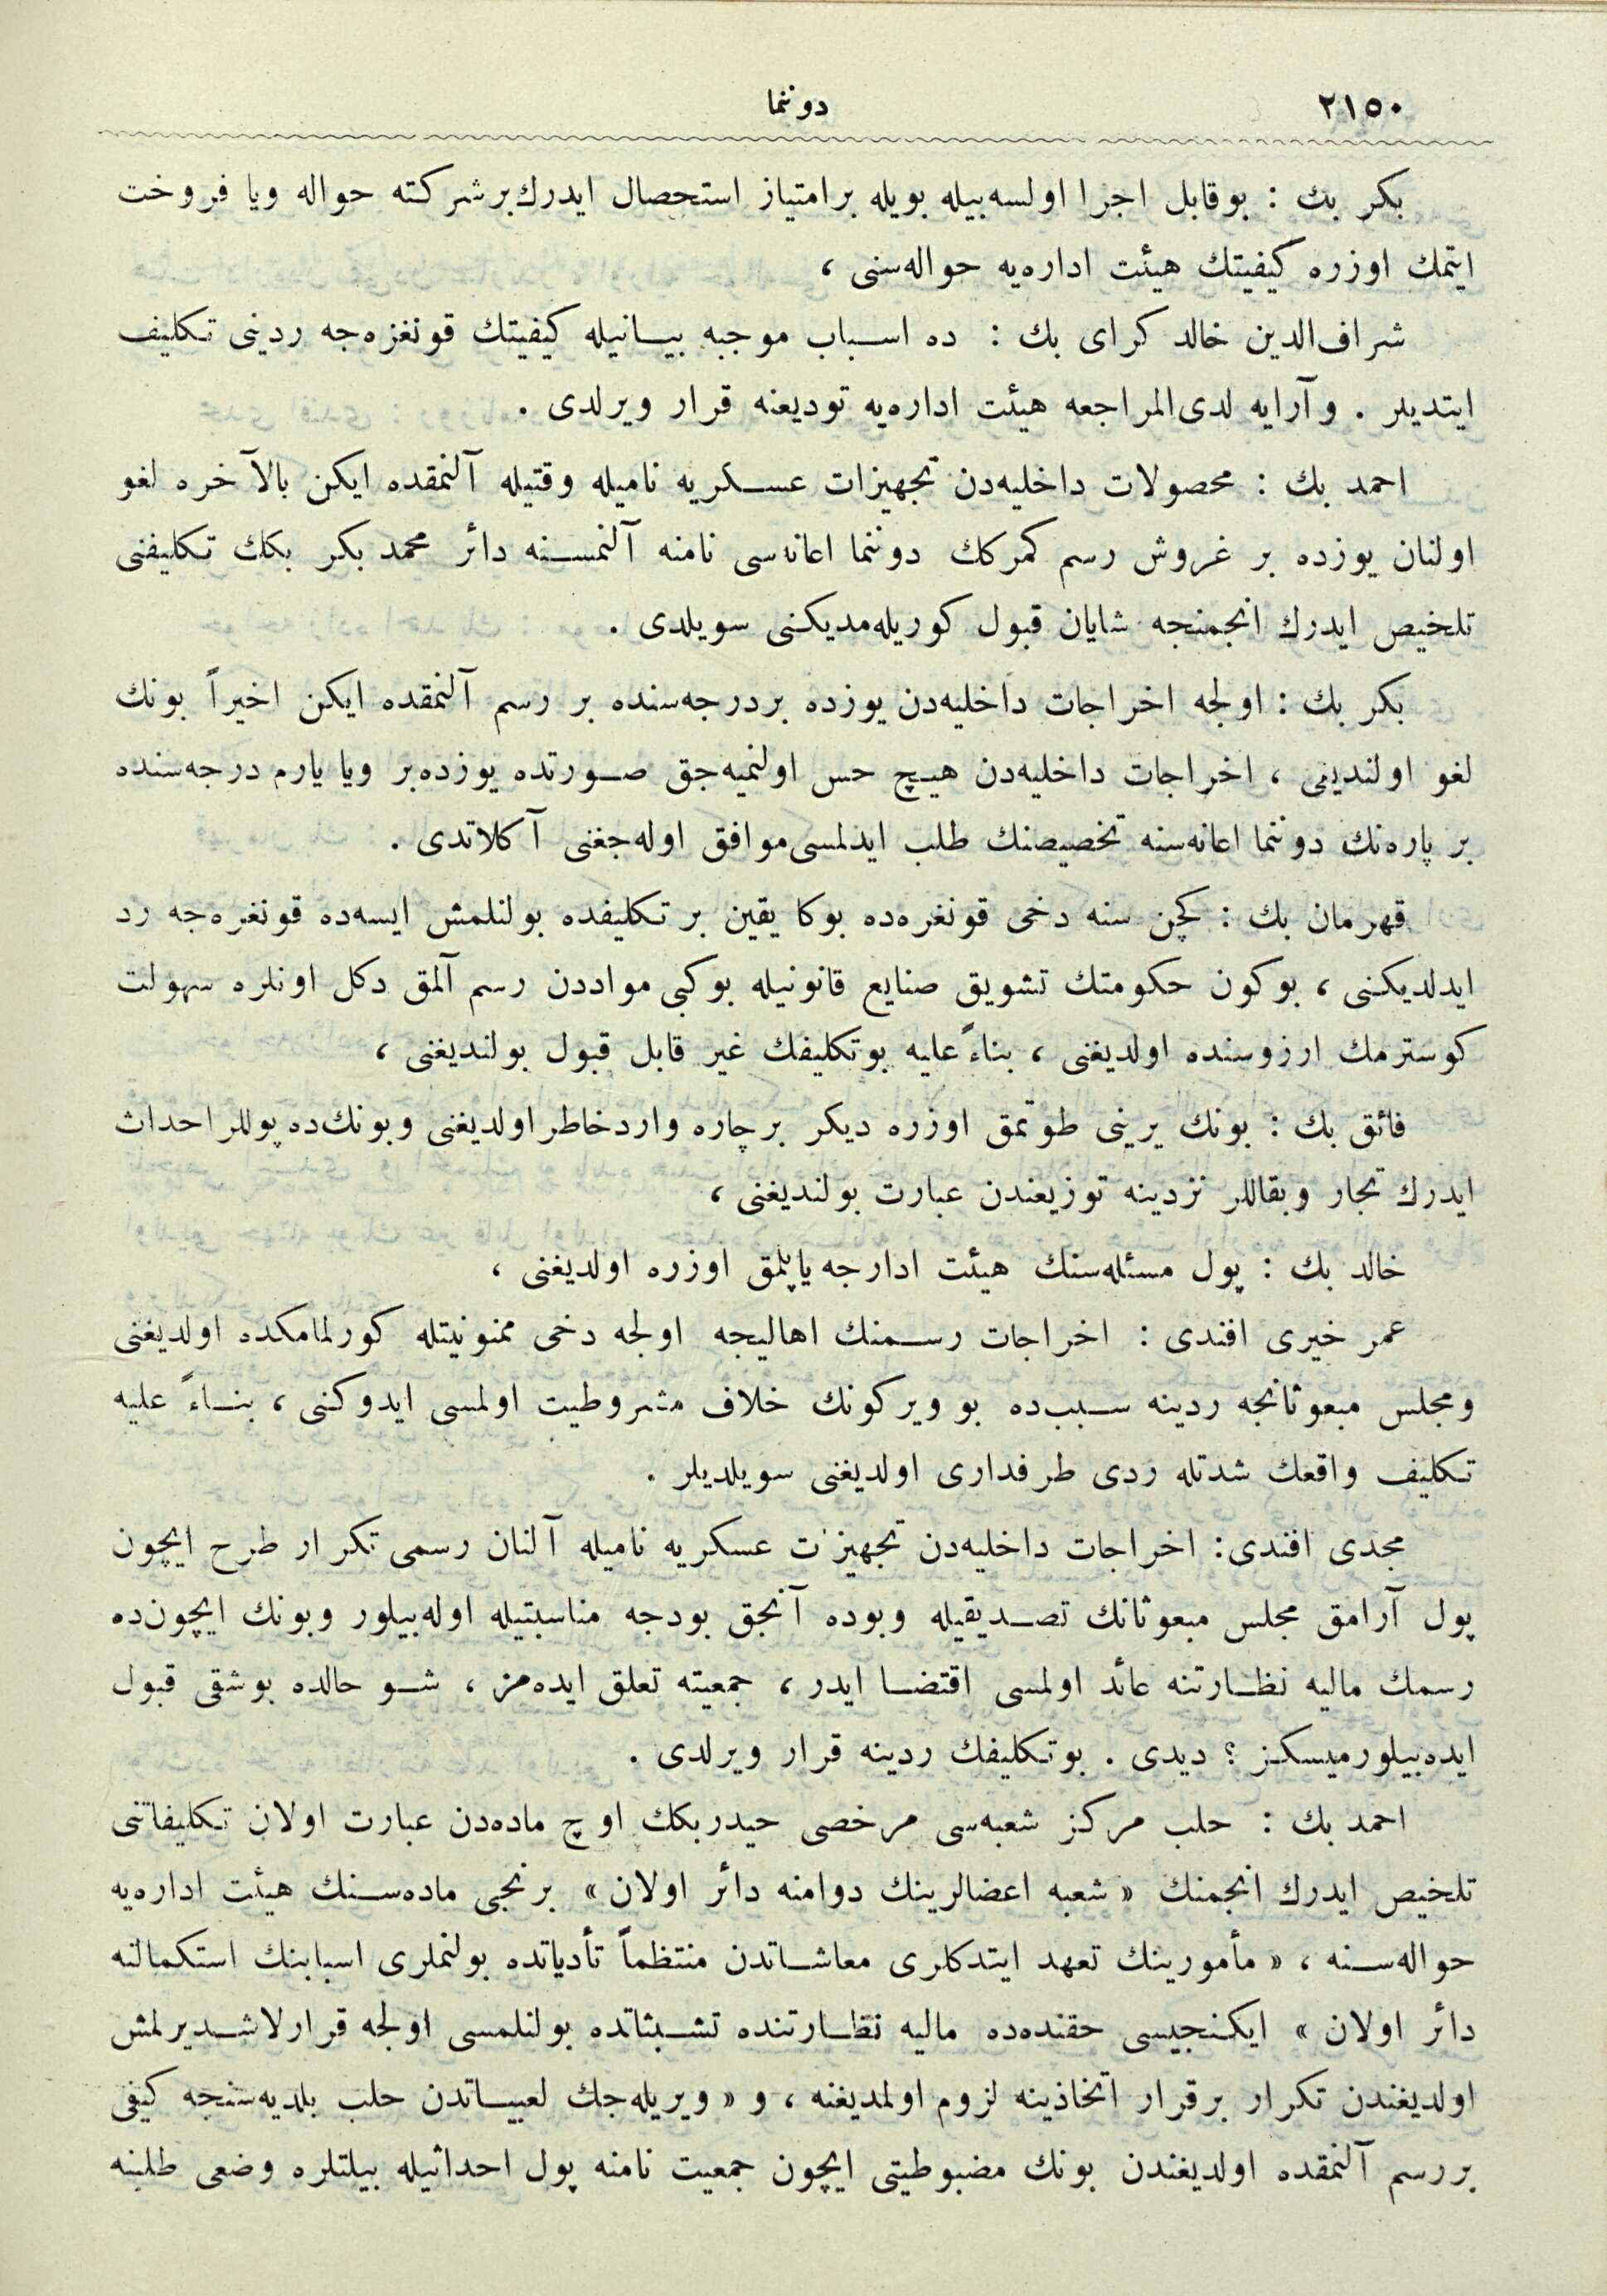 ٢١٥٠
دوننما
بكر بك : بوقابل اجرا اولسه‌بيله بويله برامتياز استحصال ايدرك‌برشركته حواله ويا فروخت
ايتمك اوزره كيفيتك هيئت اداره‌يه حواله‌سنى ،
شراف‌الدين خالد كراى بك : ده اسباب موجبه بيانيله كيفيتك قونغزه‌جه ردينى تكليف
ايتديلر . وآرايه لدى‌المراجعه هيئت اداره‌يه توديعنه قرار ويرلدى .
احمد بك : محصولات داخليه‌دن تجهيزات عسكريه ناميله وقتيله آلنمقده ايكن بالآخره لغو
اولنان يوزده بر غروش رسم كمركك دوننما اعانه‌سى نامنه آلنمسنه دائر محمد بكر بكك تكليفنى
تلخيص ايدرك انجمنجه شايان قبول كوريله‌مديكنى سويلدى .
بكر بك : اولجه اخراجات داخليه‌دن يوزده بردرجه‌سنده بر رسم آلنمقده ايكن اخيراً بونك
لغو اولنديغنى ، اخراجات داخليه‌دن هيچ حس اولنميه‌جق صورتده يوزده‌بر ويا يارم درجه‌سنده
بر پاره‌نك دوننما اعانه‌سنه تخصيصنك طلب ايدلمسى موافق اوله‌جغنى آكلاتدى .
قهرمان بك : كچن سنه دخى قونغره‌ده بوكا يقين بر تكليفده بولنلمش ايسه‌ده قونغره‌جه رد
ايدلديكنى ، بوكون حكومتك تشويق صنايع قانونيله بوكبى مواددن رسم آلمق دكل اونلره سهولت
كوسترمك ارزوسنده اولديغنى ، بناءً عليه بوتكليفك غير قابل قبول بولنديغنى ،
فائق بك : بونك يرينى طوتمق اوزره ديكر برچاره واردخاطر اولديغنى وبونك‌ده پوللر احداث
ايدرك تجار وبقاللر نزدينه توزيعندن عبارت بولنديغنى ،
خالد بك : پول مسئله‌سنك هيئت ادارجه ياپلمق اوزره اولديغنى ،
عمر خيرى افندى : اخراجات رسمنك اهاليجه اولجه دخى ممنونيتله كورلمامكده اولديغنى
ومجلس مبعوثانجه ردينه سبب‌ده بو ويركونك خلاف مشروطيت اولمسى ايدوكنى ، بناءً عليه
تكليف واقعك شدتله ردى طرفدارى اولديغنى سويلديلر .
مجدى افندى : اخراجات داخليه‌دن تجهيزت عسكريه ناميله آلنان رسمى تكرار طرح ايچون
پول آرامق مجلس مبعوثانك تصديقيله وبوده آنجق بودجه مناسبتيله اوله‌بيلور وبونك ايچون‌ده
رسمك ماليه نظارتنه عائد اولمسى اقتضا ايدر ، جمعيته تعلق ايده‌مز ، شو حالده بوشقى قبول
ايده‌بيلورميسكز ؟ ديدى . بوتكليفك ردينه قرار ويرلدى .
احمد بك : حلب مركز شعبه‌سى مرخصى حيدربكك اوچ ماده‌دن عبارت اولان تكليفاتنى
تلخيص ايدرك انجمنك « شعبه اعضالرينك دوامنه دائر اولان » برنجى ماده‌سنك هيئت اداره‌يه
حواله‌سنه ، « مأمورينك تعهد ايتدكلرى معاشاتدن منتظماً تأدياتده بولنملرى اسبابنك استكمالنه
دائر اولان » ايكنجيسى حقنده‌ده ماليه نظارتنده تشبثاتده بولنلمسى اولجه قرارلاشديرلمش
اولديغندن تكرار برقرار اتخاذينه لزوم اولمديغنه ، و « ويريله‌جك لعبياتدن حلب بلديه‌سنجه كيفى
بررسم آلنمقده اولديغندن بونك مضبوطيتى ايچون جمعيت نامنه پول احداثيله بيلتلره وضعى طلبنه